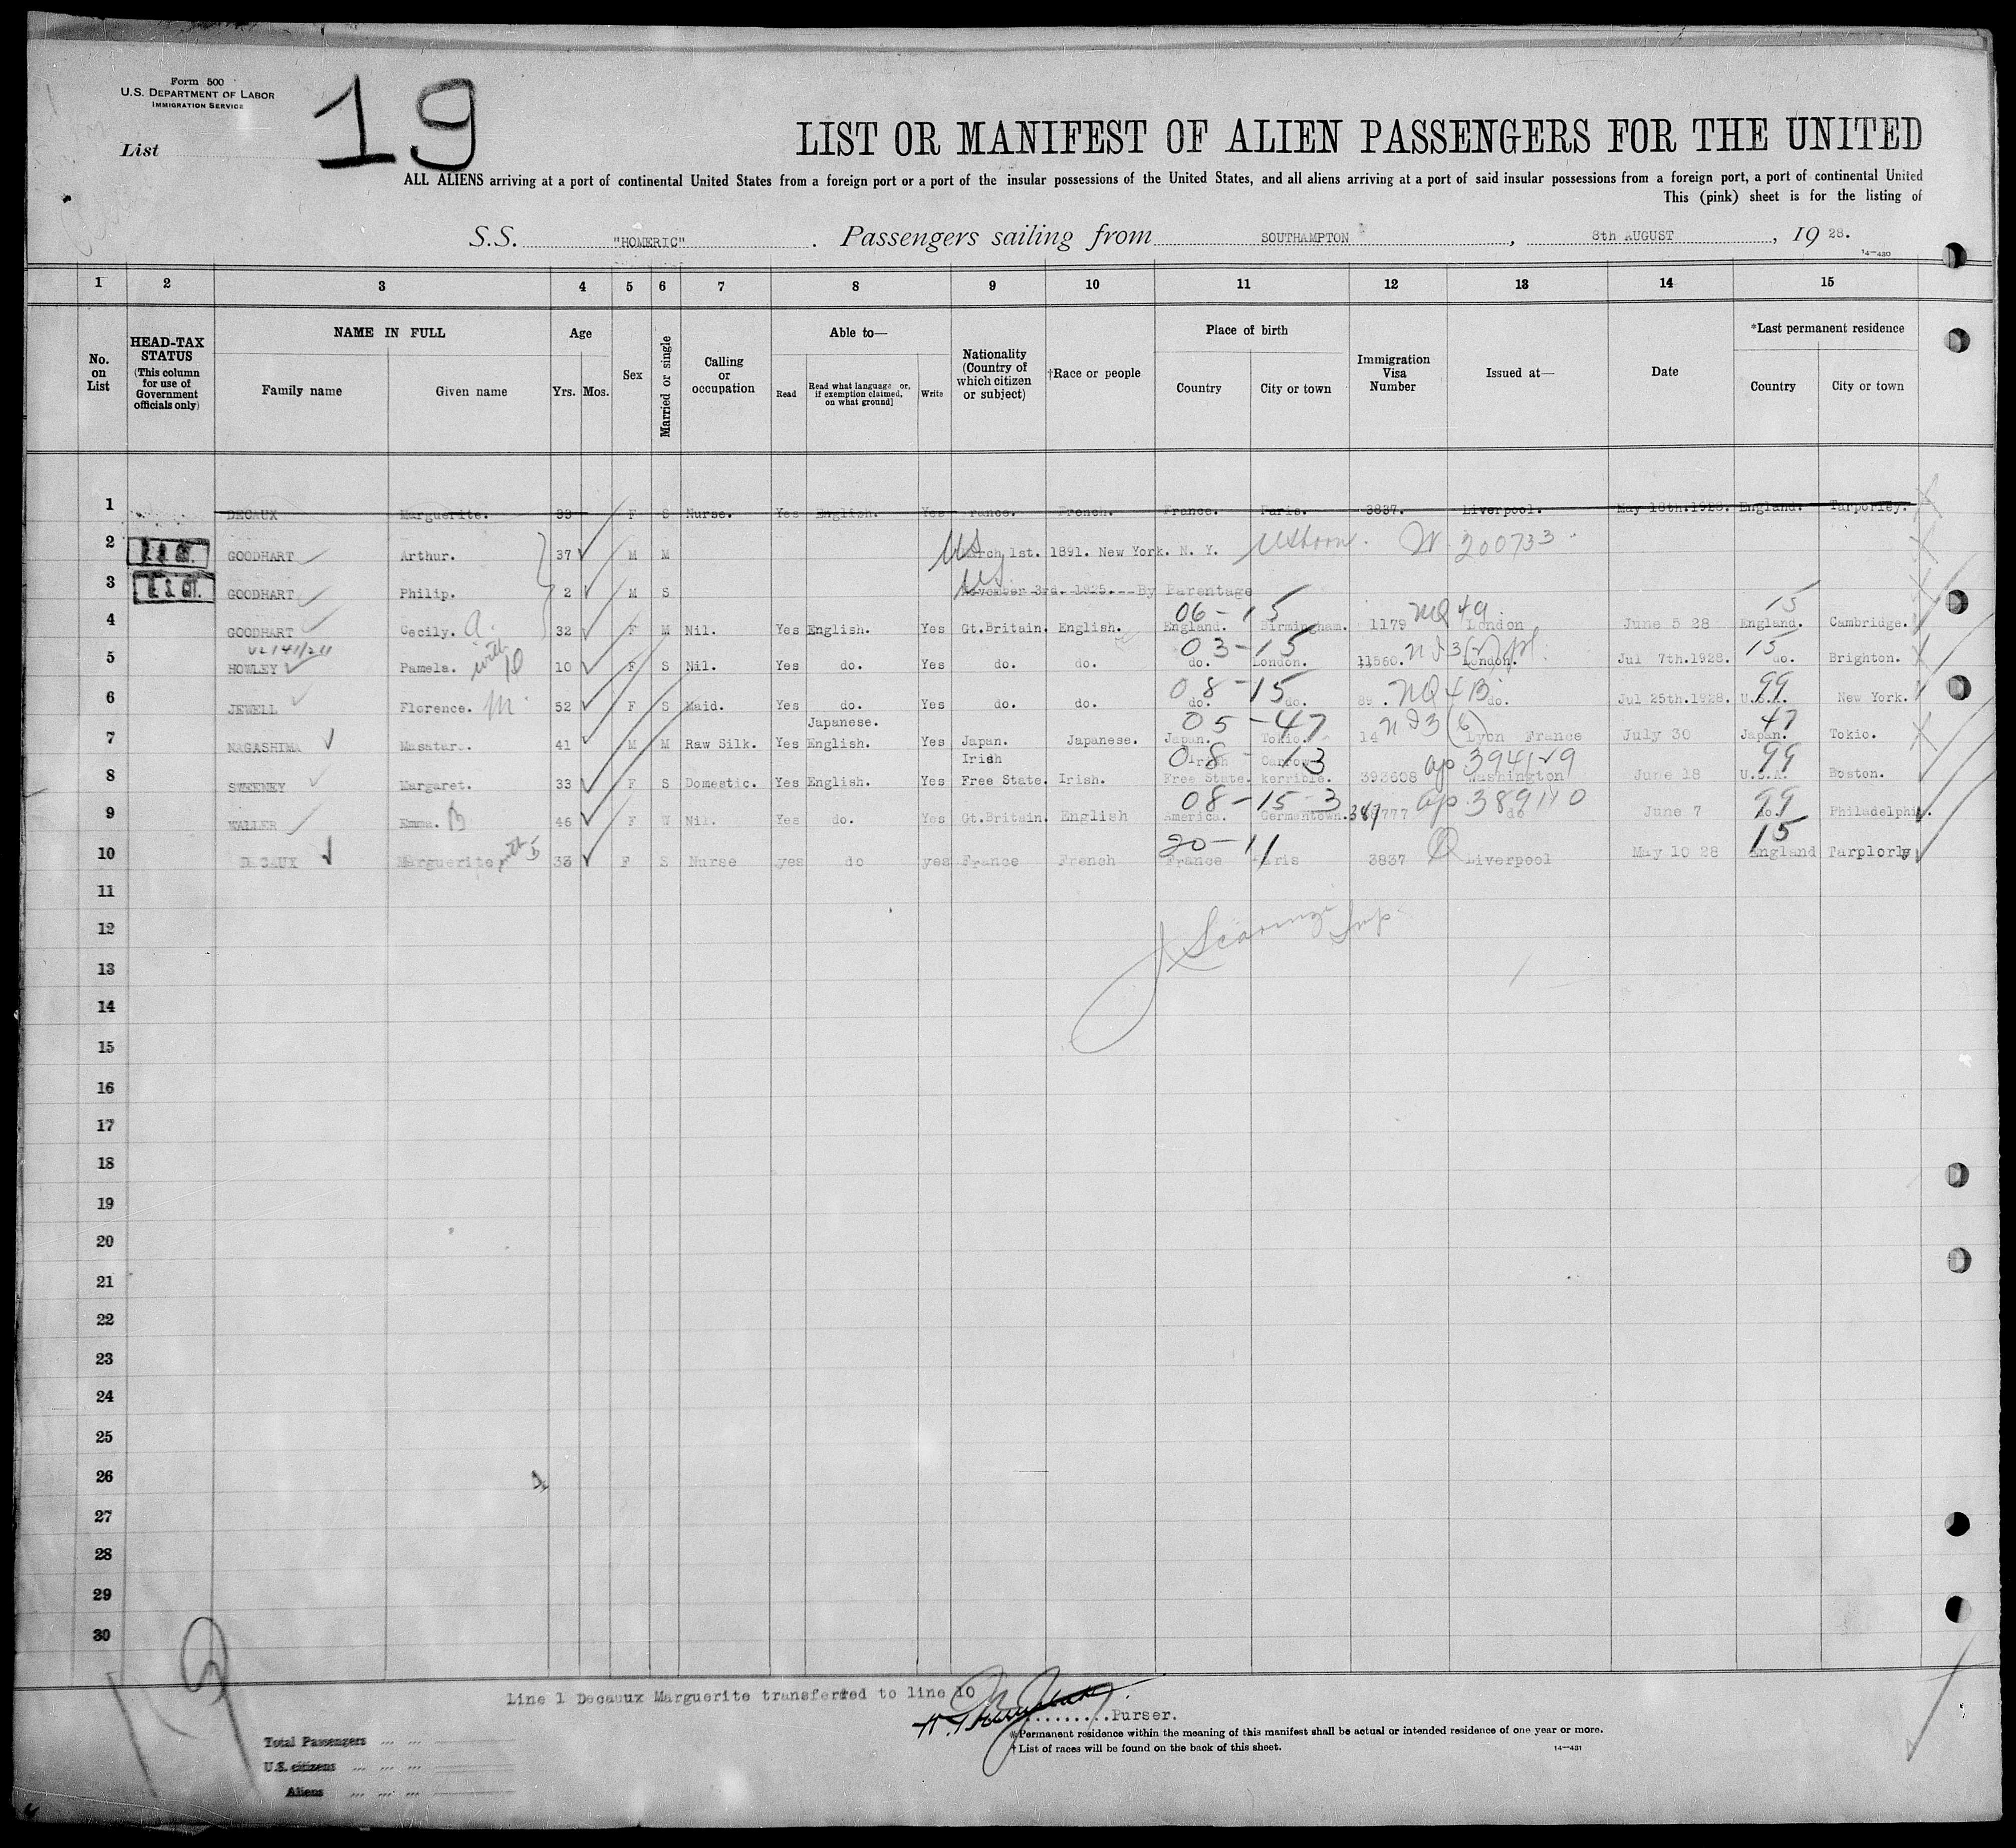 Form 500
U.S. DEPARTMENT OF LABOR
IMMIGRATION SERVICE
List
19
LIST OR MANIFEST OF ALIEN PASSENGERS FOR THE UNITED
ALL ALIENS arriving at a port of continental United States from a foreign port or a port of the insular possessions of the United States, and all aliens arriving at a port of said insular possessions from a foreign port, a port of continental United
This (pink) sheet is for the listing of
S.S. "HOMERIC". Passengers sailing from SOUTHAMPTON, 8th AUGUST, 19 28.
14-430
1 2 3 4 5 6 7 8 9 10 11 12 13 14 15
No. on List
HEAD-TAX STATUS (This column for use of Government officials only)
NAME IN FULL
Family name Given name
Age
Yrs. Mos.
Sex
Married or single
Calling or occupation
Able to—
Read Read what language or, if exemption claimed, on what ground] Write
Nationality (Country of which citizen or subject)
†Race or people
Place of birth
Country City or town
Immigration Visa Number
Issued at—
Date
*Last permanent residence
Country City or town
1 DECAUX Marguerite. 33 F S Nurse. Yes English. Yes rance. French. France. Paris. 3837. Liverpool. May 18th.1928. England. Tarporley.
2 GOODHART Arthur. 37 M M US March 1st. 1891. New York. N. Y. W. 200733
3 GOODHART Philip. 2 M S US November 3rd. 1925.---By Parentage
06-15 NQ 4a. 15
4 GOODHART Cecily. A. 32 F M Nil. Yes English. Yes Gt.Britain. English. England. Birmingham. 1179 London June 5 28 England. Cambridge.
03-15 15
5 HOWLEY Pamela. with 10 10 F S Nil. Yes do. Yes do. do. do. London. 11560. London. Jul 7th.1928. do. Brighton.
08-15 NQ 4B 99
6 JEWELL Florence. M 52 F S Maid. Yes do. Yes do. do. do. do. 89. do. Jul 25th.1928. U.S.A. New York.
Japanese. 05-47 47
7 NAGASHIMA 41 M M Raw Silk. Yes English. Yes Japan. Japanese. Japan. Tokio. 14 Lyon France July 30 Japan. Tokio.
Irish 08-13 99
8 SWEENEY Margaret. 33 F S Domestic. Yes English. Yes Free State. Irish. Free State. kerrible. 393608 Washington June 18 U.S.A. Boston.
08-15-3 389110 99
9 WALLER Emma. B 46 F W Nil. Yes do. Yes Gt.Britain. English America. Germantown. do June 7 do. Philadelphia.
20-11 15
10 DECAUX Marguerite with 5 33 F S Nurse yes do yes France French France Paris 3837 Liverpool May 10 28 England Tarplorly
11
12
13
14
15
16
17
18
19
20
21
22
23
24
25
26
27
28
29
30
Line 1 Decaux Marguerite transferred to line 10
Purser.
* Permanent residence within the meaning of this manifest shall be actual or intended residence of one year or more.
† List of races will be found on the back of this sheet.
14-431
Total Passengers
U.S. citizens
Aliens